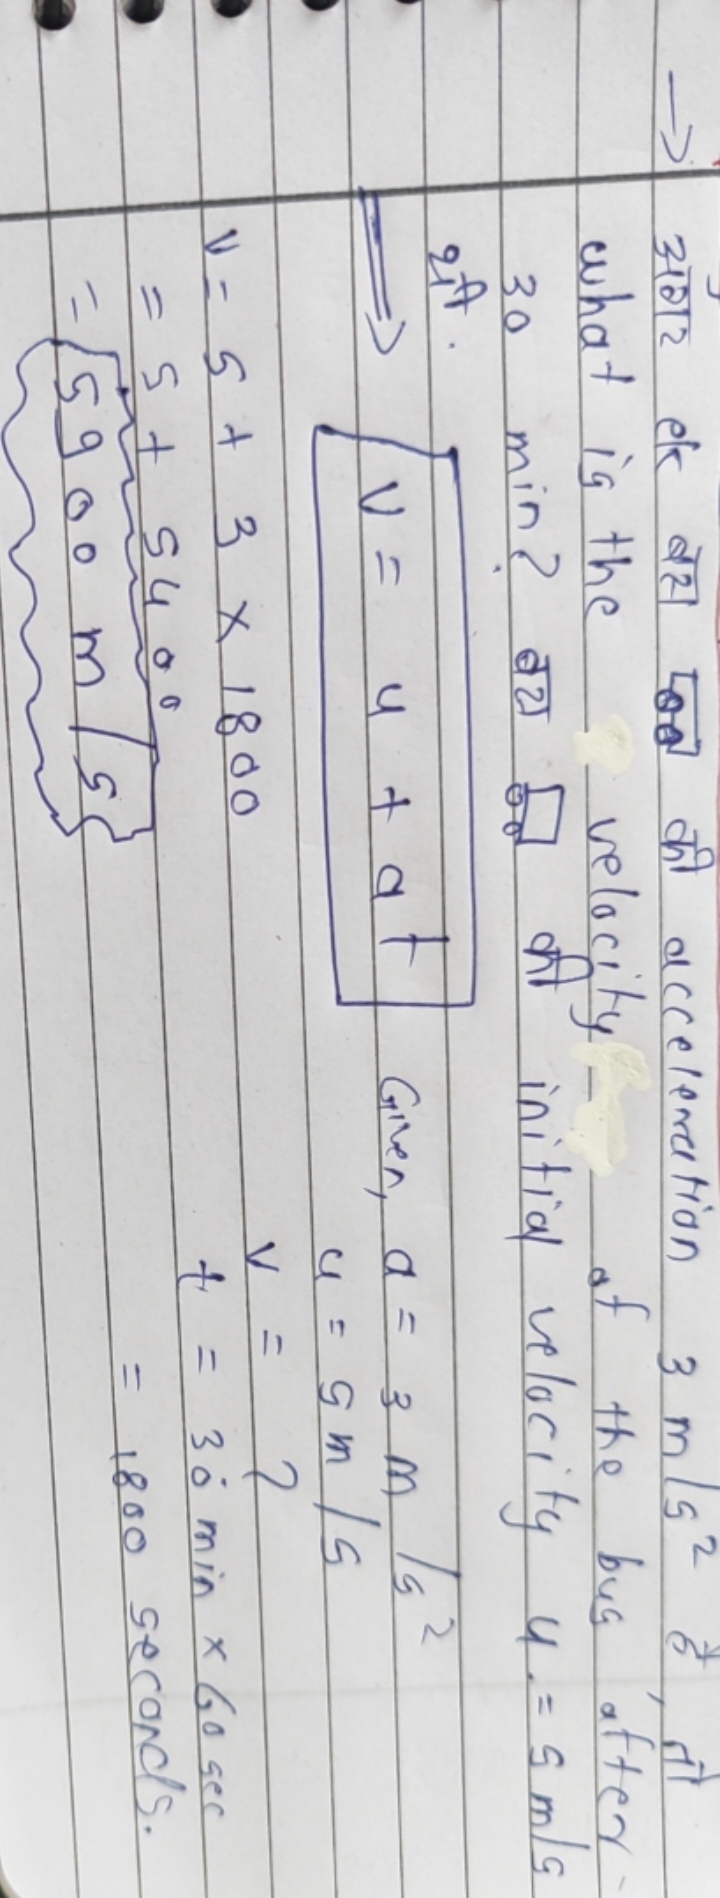 → अगर एक बस की acceleration 3 m/s² है, तो
what is the velocity of the bus after
30 min? बस की initial velocity u = 5 m/s
थी.
⇒ v = u + at Given, a = 3 m/s²
u = 5 m/s
v = ?
v = 5 + 3 × 1800 t = 30 min × 60 sec
= 5 + 5400 = 1800 seconds.
= 5900 m/s